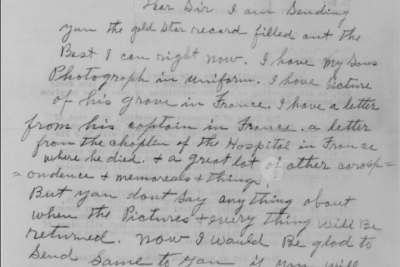 Dear Sir I am Sending
you the gold Star record filled out the
Best I can right now. I have my Sons
Photograph in uniform. I have Picture
of his grave in France. I have a letter
from his captain in France. a letter
from the chaplen of the Hospital in France
where he died. + a great lot of other corosp-
ondence + memoreals + things.
But you dont Say any thing about
when the Pictures + every thing will Be
returned. now I would Be glad to
Send Same to you if you will